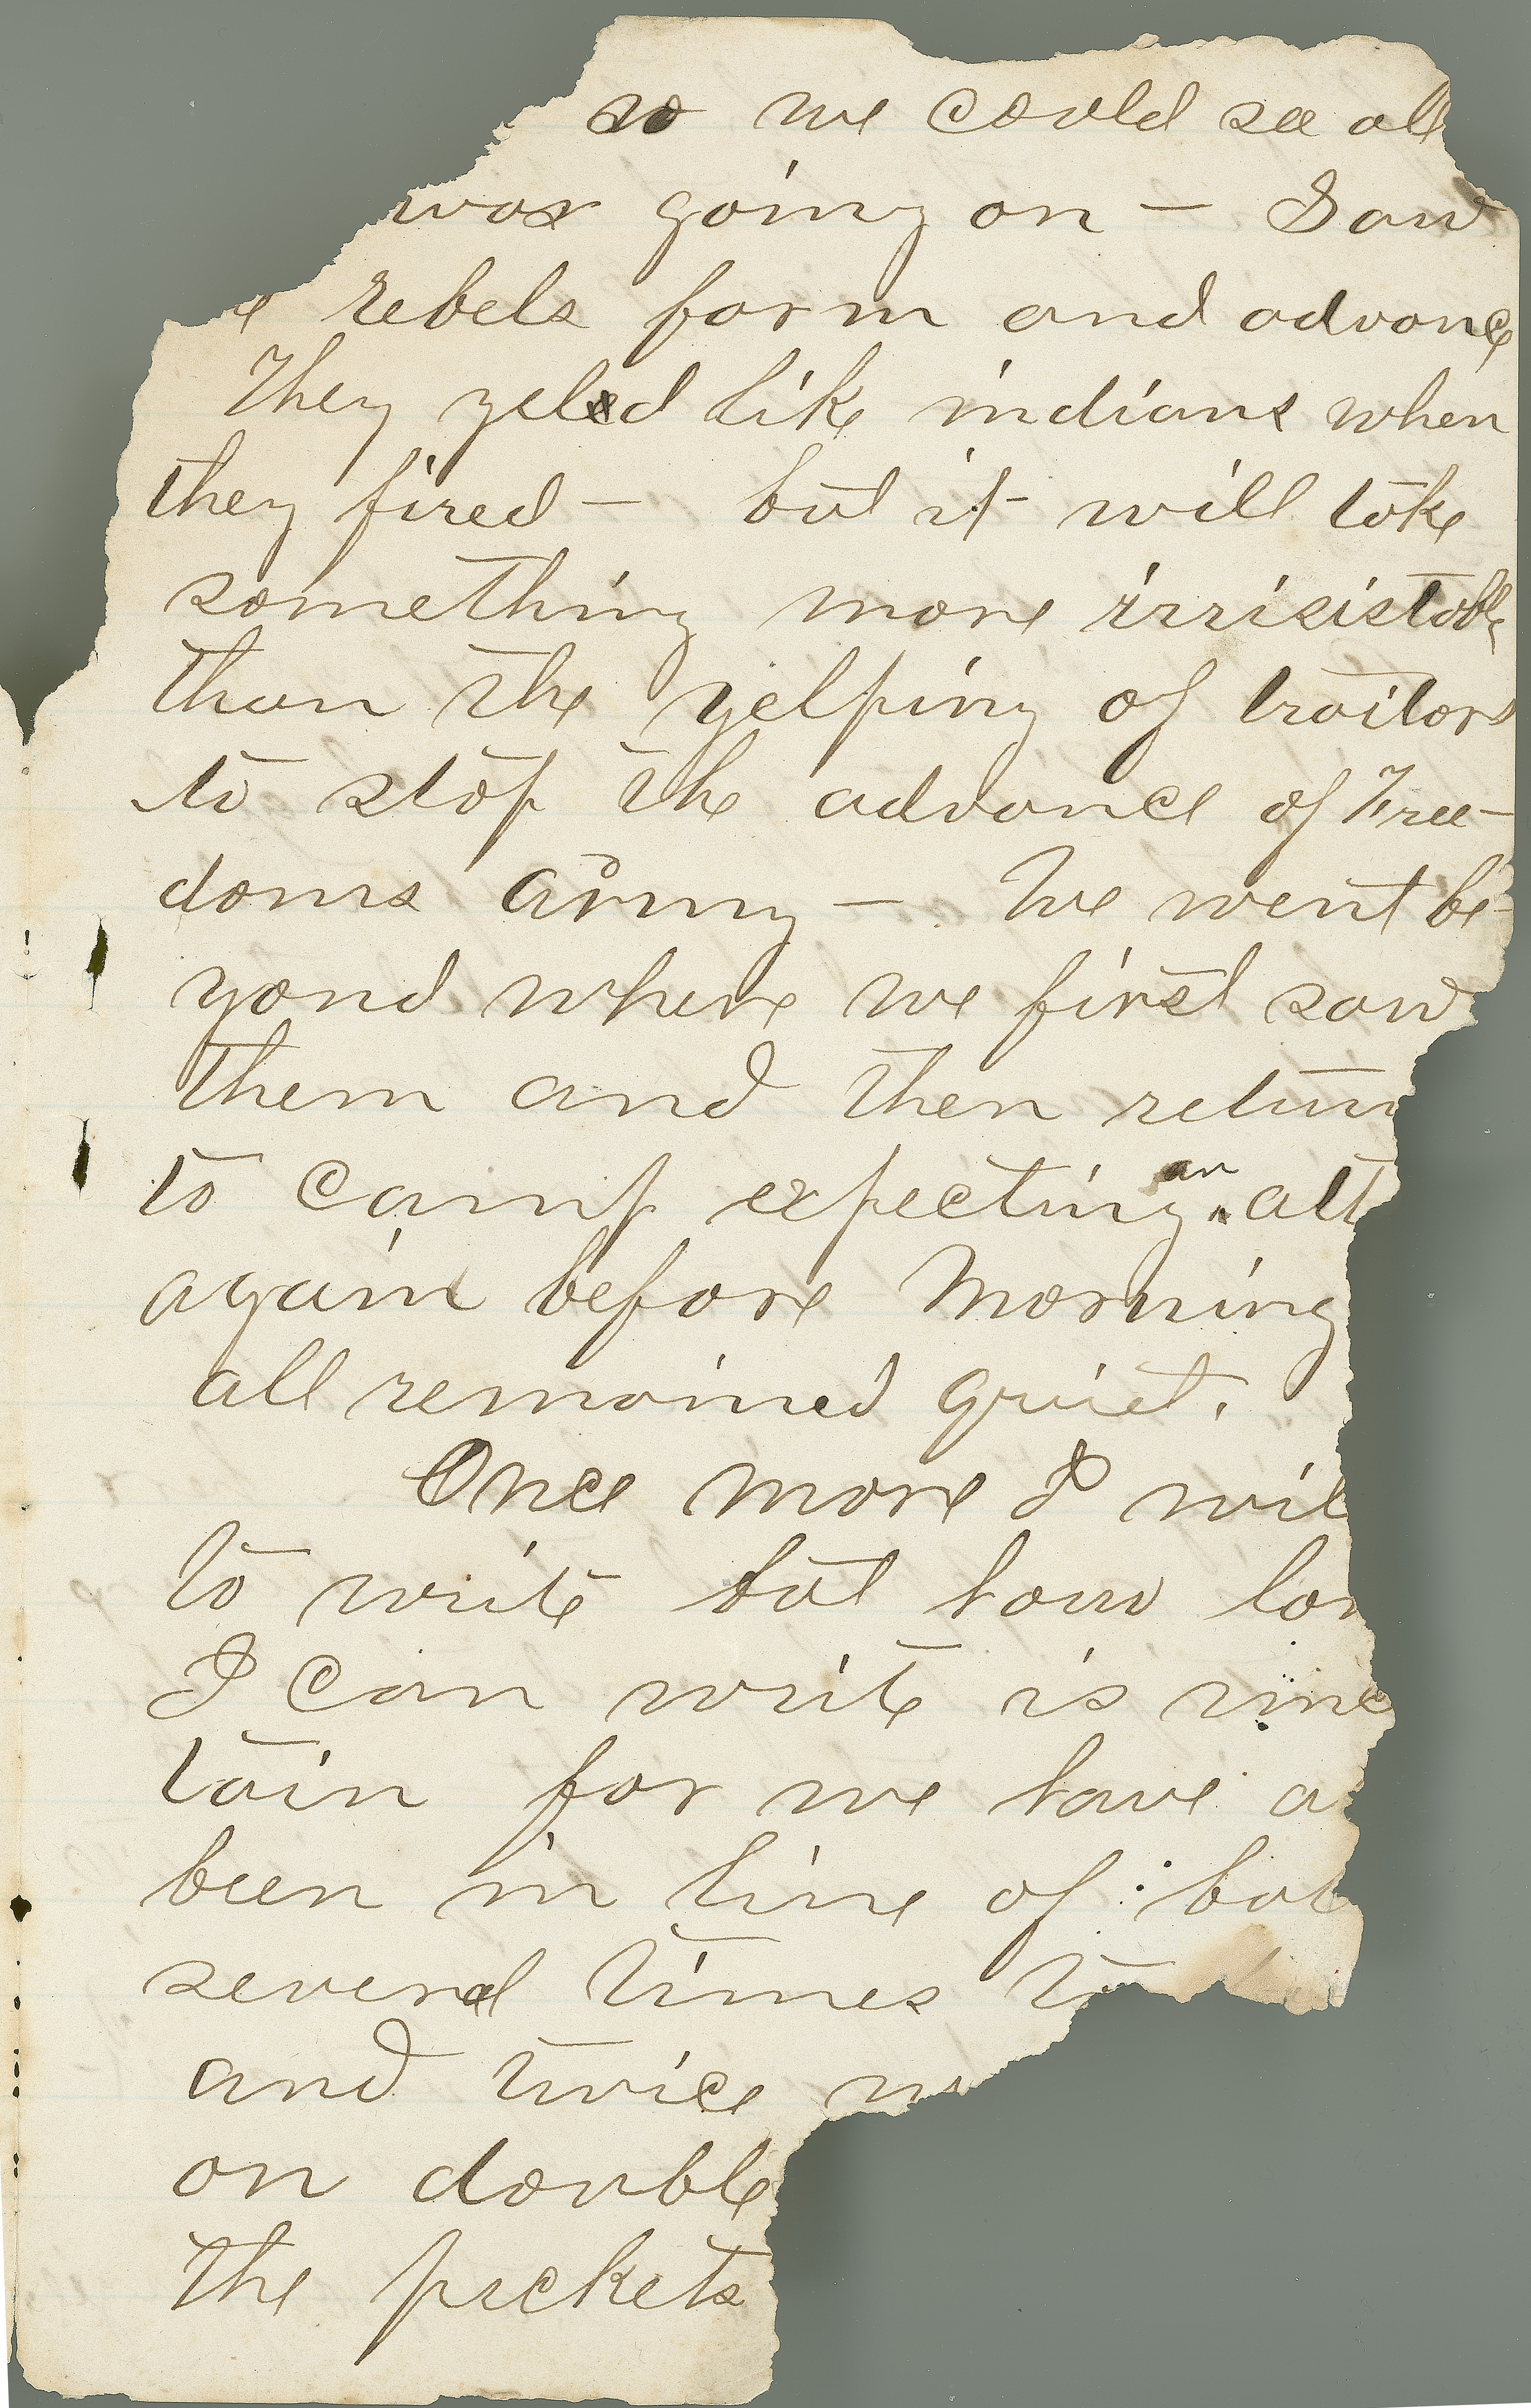 so we could see all
was going on — Saw
e rebels form and advance
They yeled like indians when
they fired — but it will take
something more irrisistable
than the yelping of traitors
to stop the advance of Free-
doms army — We went be-
yond where we first saw
them and then return
to camp expecting an att
again before Morning
all remained quiet.
Once more I wil
to write but how lon
I can write is unc
tain for we have a
been in line of bat
several times to
and twice
on double
the pickets